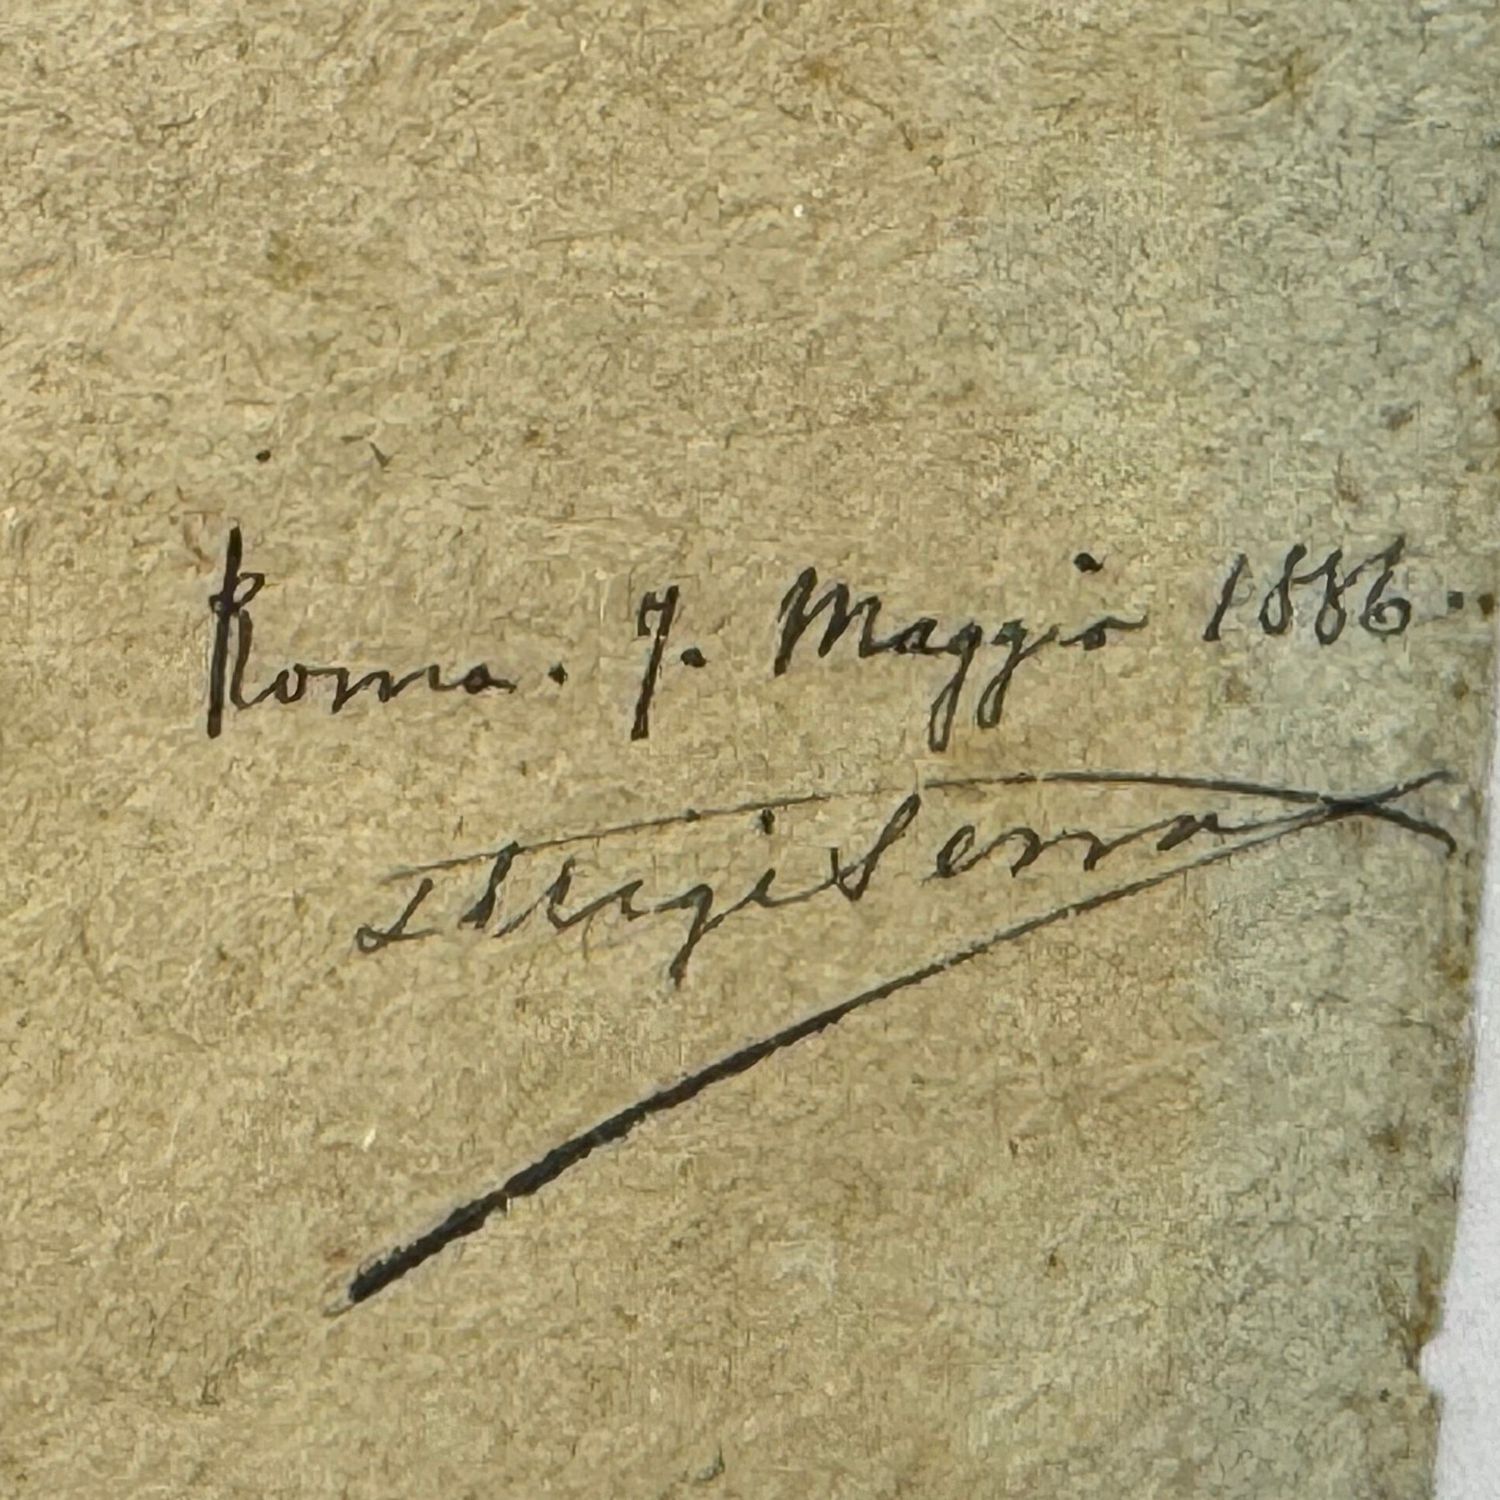 Roma. 7. Maggio 1886.
Luigi Serra